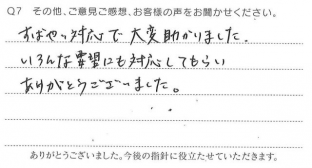 Q7 その他、ご意見ご感想、お客様の声をお聞かせください。
すばやい対応で大変助かりました.
いろんな要望にも対応してもらい
ありがとうございました。
ありがとうございました。今後の指針に役立たせていただきます。